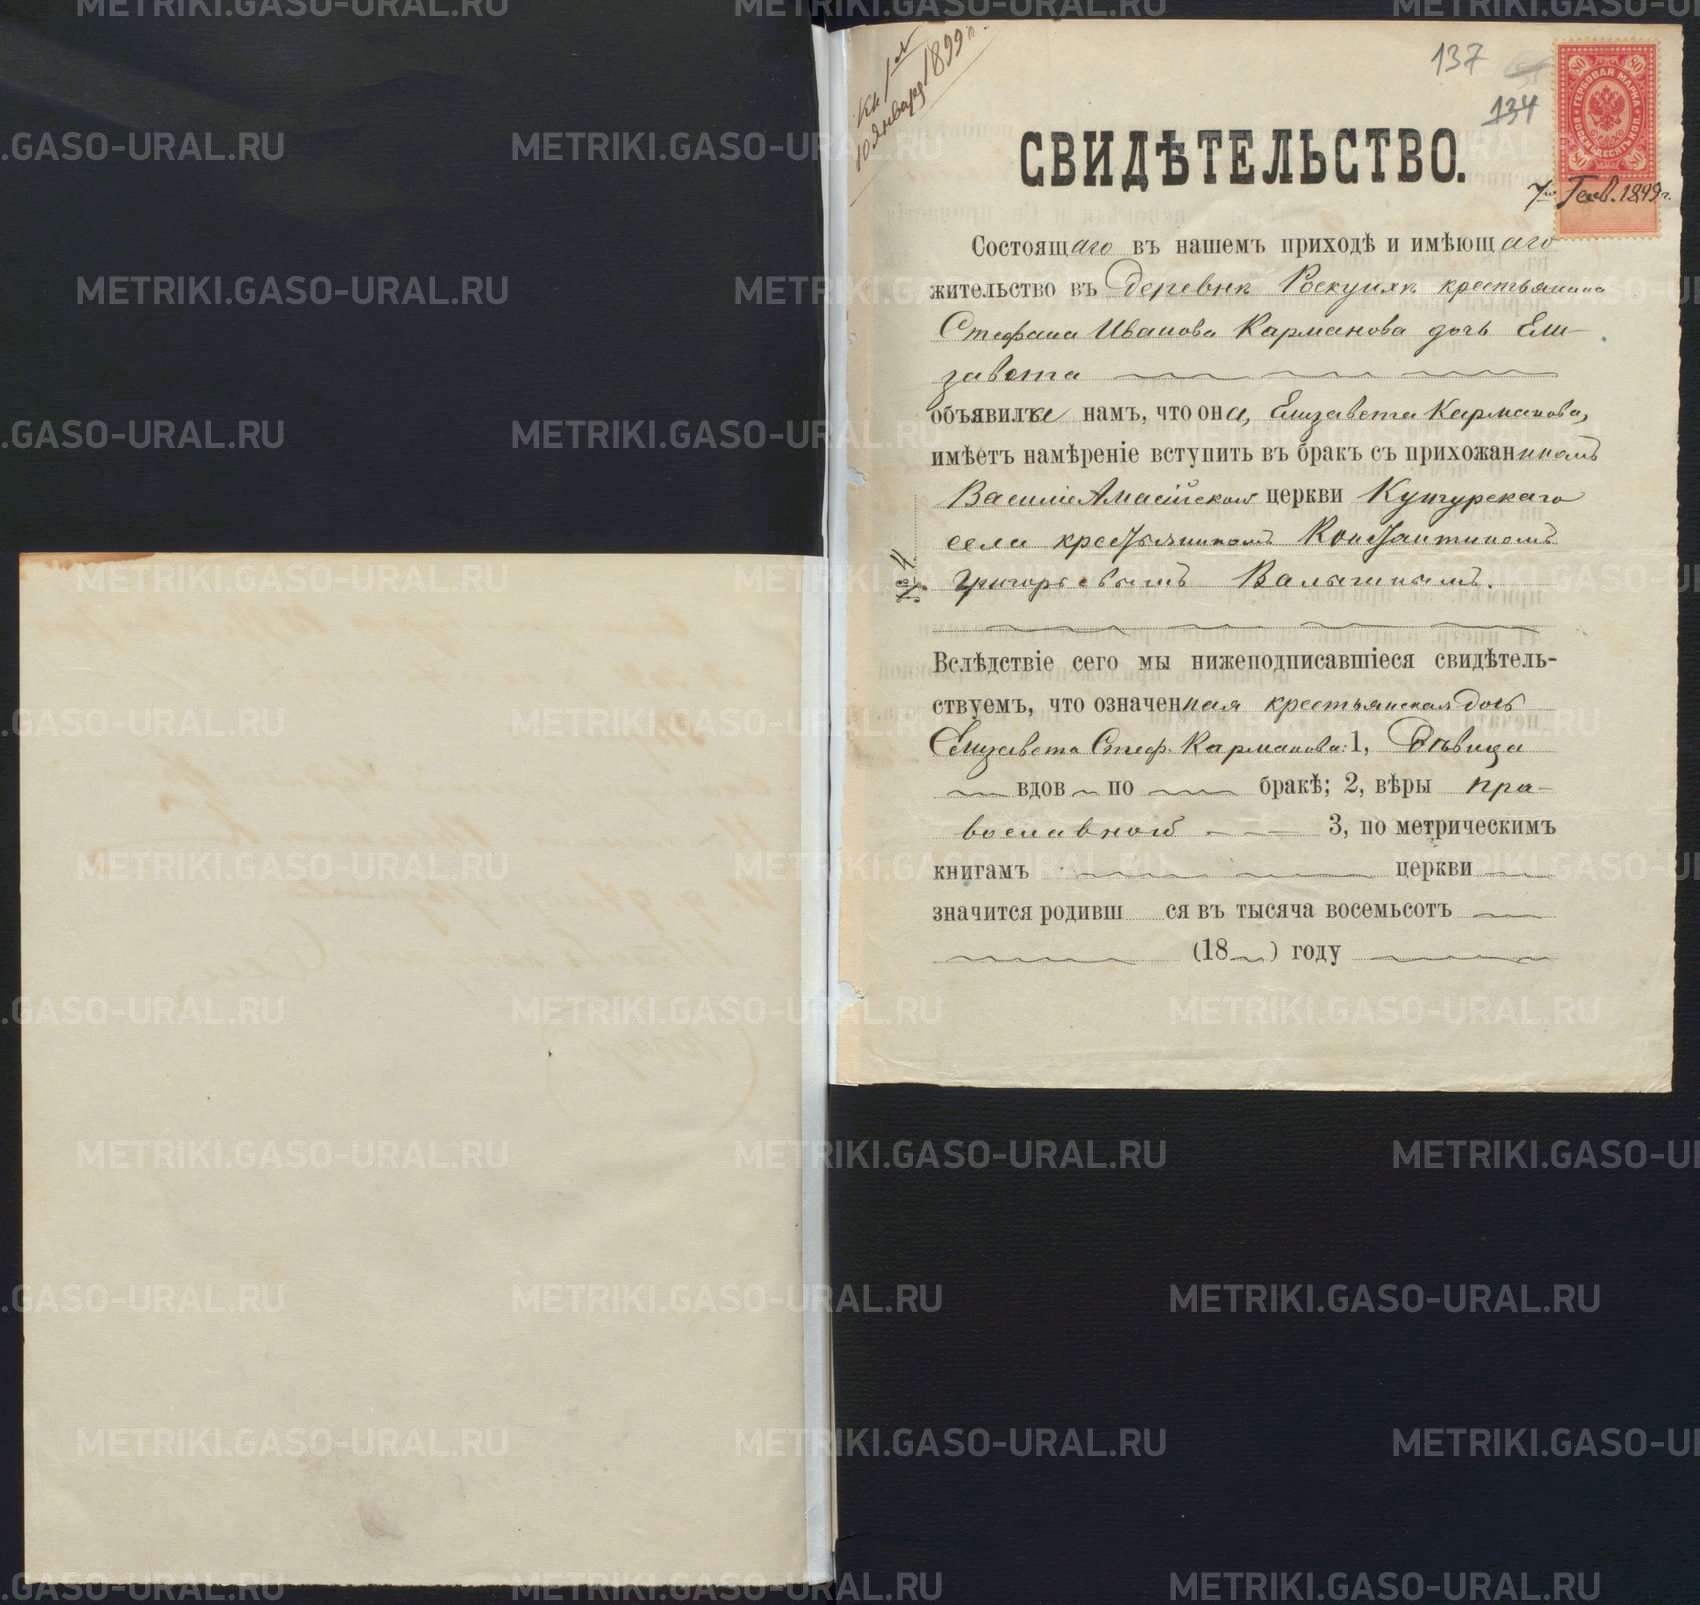 къ 1
10 Января 1899 г.
137
134
80 80
ГЕРБОВАЯ МАРКА ВОСЕМЬДЕСЯТЪ КОП.
80 80
7го Генв. 1899 г.
СВИДѢТЕЛЬСТВО.
Состоящаго въ нашемъ приходѣ и имѣющаго
жительство въ деревнѣ крестьянина
Стефана Иванова Карманова дочь Ели-
завета
объявила намъ, что она, Елизавета Карманова,
имѣетъ намѣреніе вступить въ бракъ съ прихожаниномъ
Василіе Амасійской церкви Кунгурскаго
села крестьяниномъ Константиномъ
Григорьевымъ Валычинымъ.
№ 4
Вслѣдствіе сего мы нижеподписавшіеся свидѣтель-
ствуемъ, что означенная крестьянская дочь
Елизавета Стеф. Карманова: 1, Дѣвица
вдов по бракѣ; 2, вѣры пра-
вославной 3, по метрическимъ
книгамъ церкви
значится родивш ся въ тысяча восемьсотъ
(18 ) году
METRIKI.GASO-URAL.RU